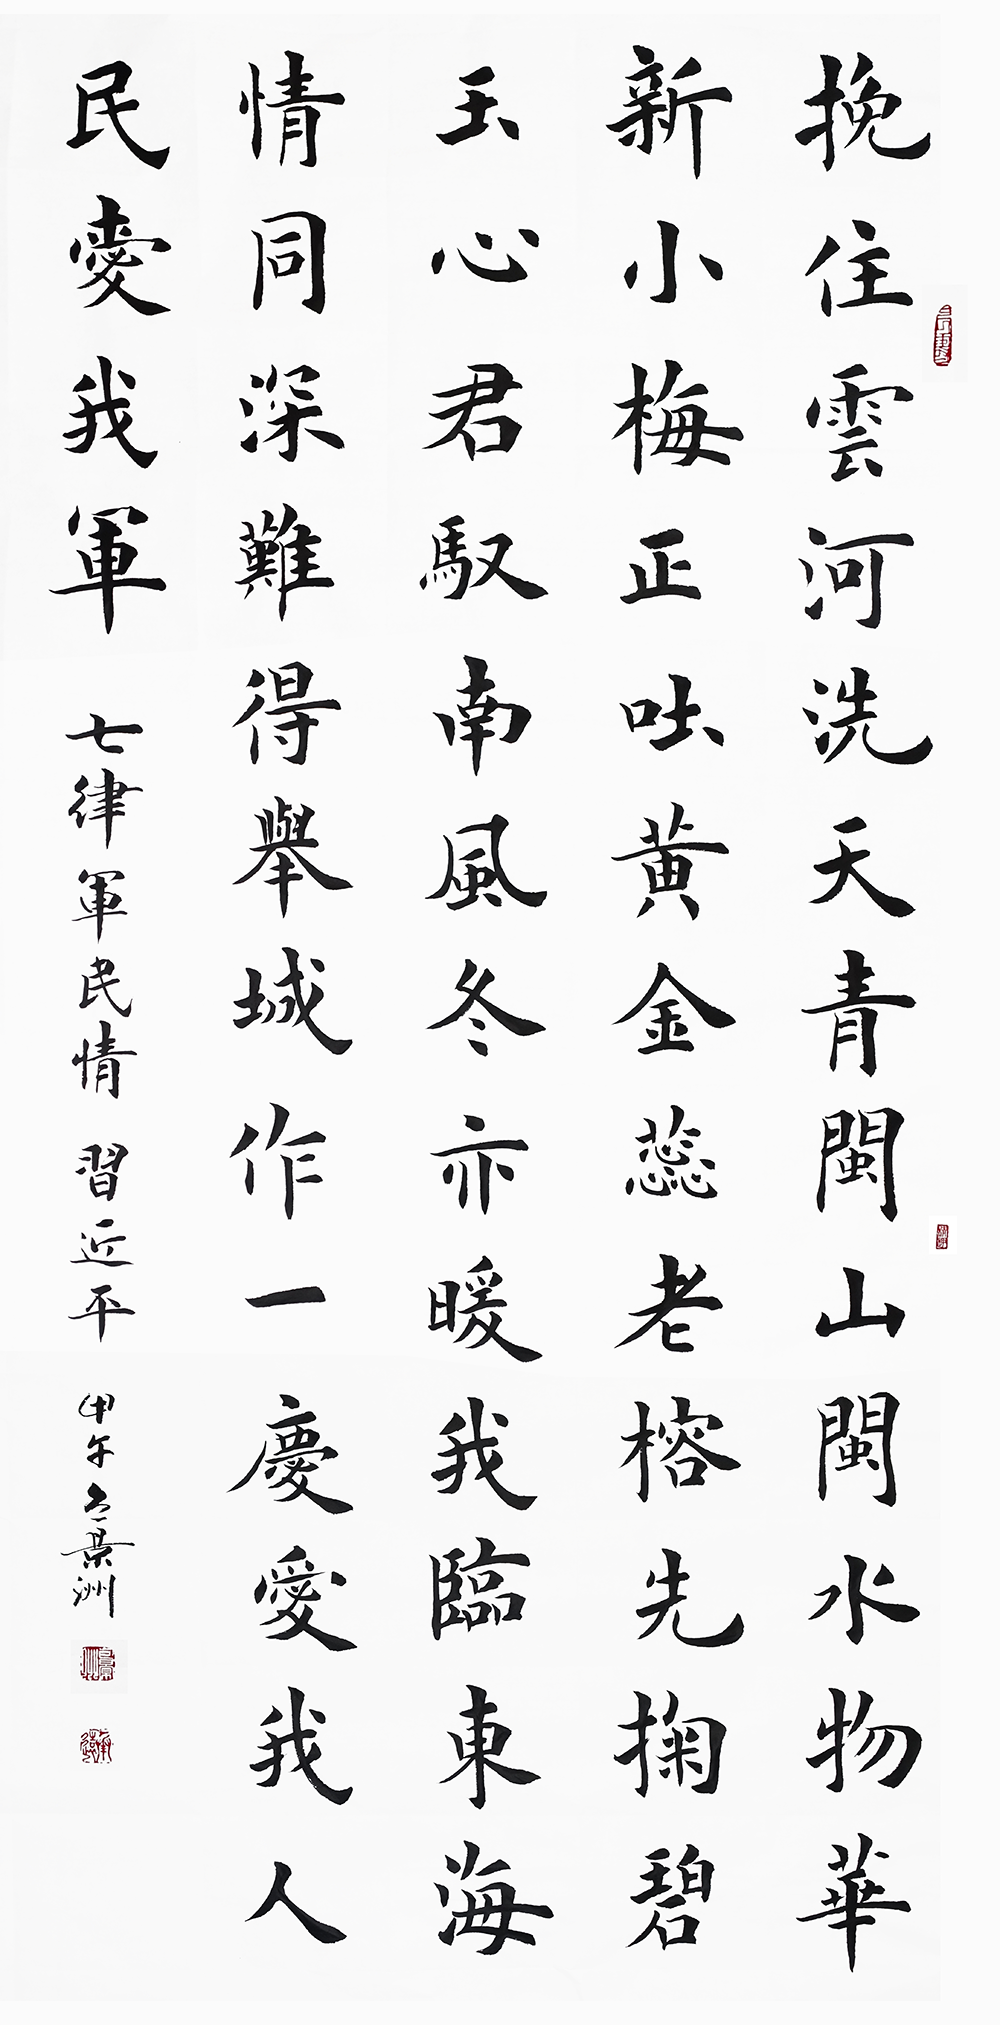 挽住雲河洗天青閩山閩水物華
新小梅正吐黄金蕊老榕先掬碧
玉心君馭南風冬亦暖我臨東海
情同深難得舉城作一慶愛我人
民愛我軍 七律軍民情 習近平 甲午冬景洲